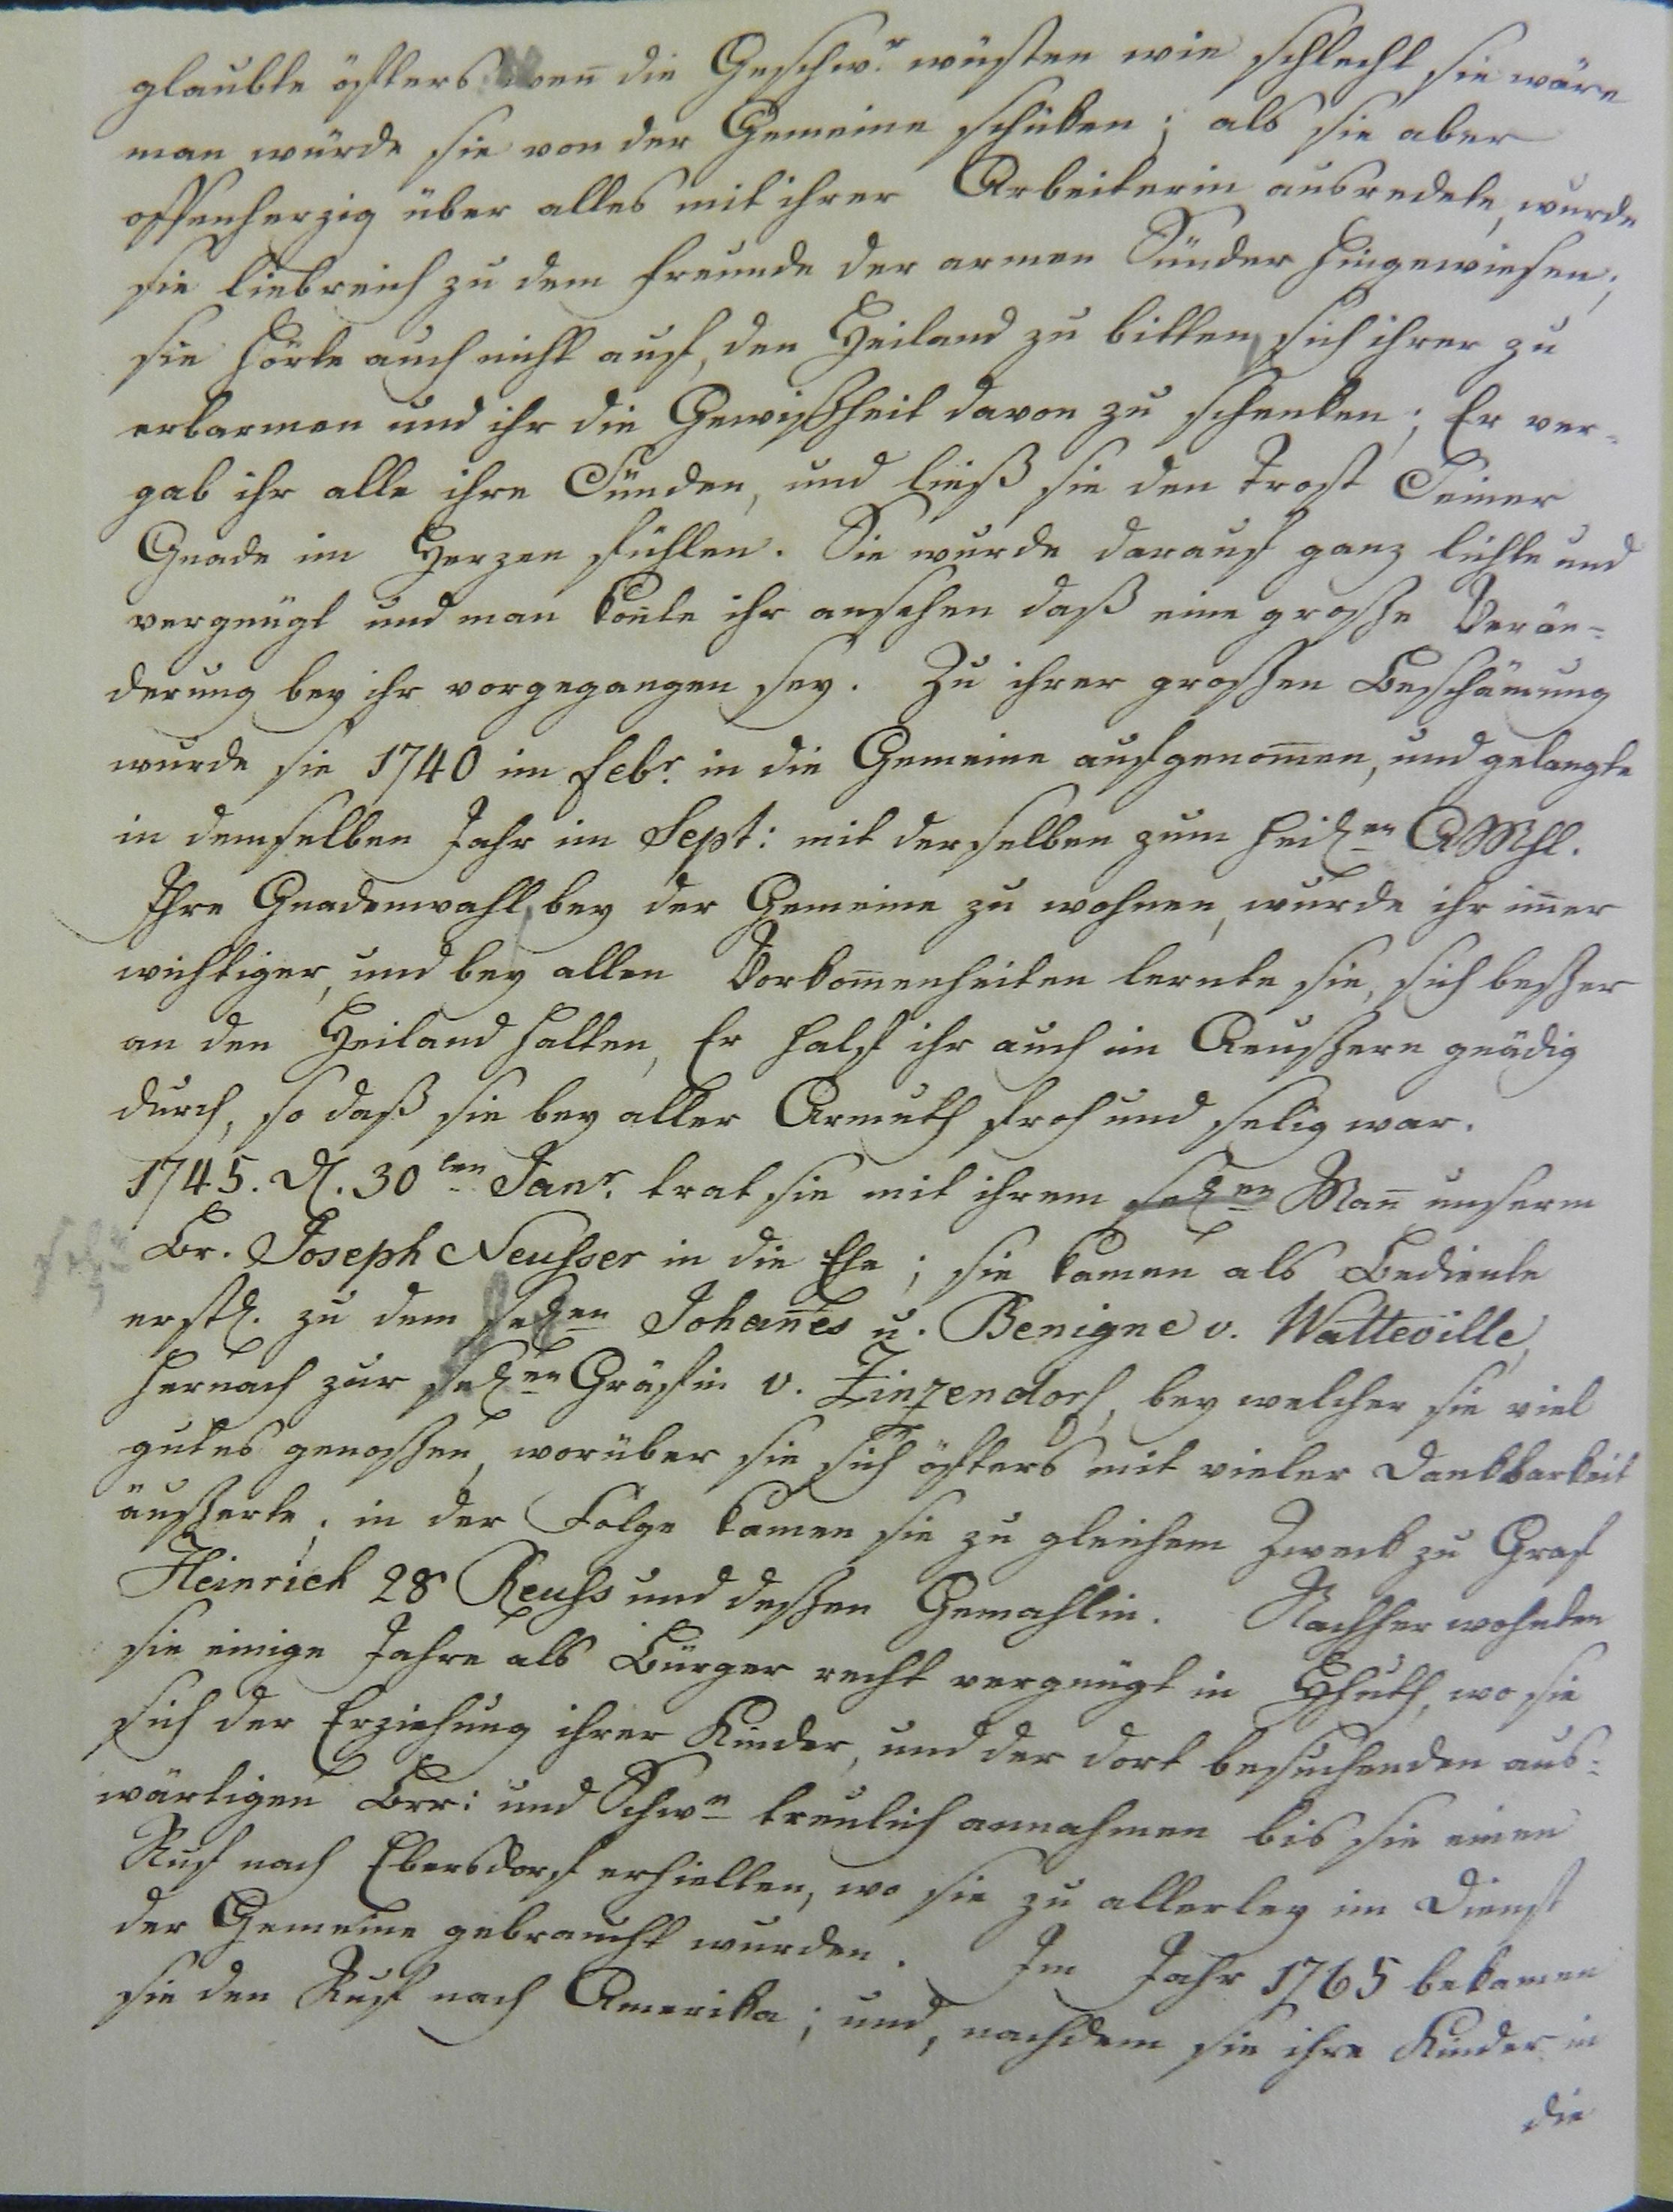 glaubte öfters wen̄ die Geschwr. wüsten wie schlecht sie wäre
man würde sie von der Gemeine schicken; als sie aber
offenherzig über alles mit ihrer Arbeiterin ausredete, wurde
sie liebreich zu dem Freunde der armen Sünder hingewiesen;
sie hörte auch nicht auf, den Heiland zu bitten, sich ihrer zu
erbarmen und ihr die Gewißheit davon zu schenken; Er ver-
gab ihr alle ihre Sünden, und ließ sie den Trost Seiner
Gnade im Herzen fühlen. Sie wurde darauf ganz lichte und
vergnügt und man kon̄te ihr ansehen daß eine große Verän-
derung bey ihr vorgegangen sey. Zu ihrer großen Beschämung
wurde sie 1740 im Febr. in die Gemeine aufgenom̄en, und gelangte
in demselben Jahr im Sept: mit derselben zum heilen AMhl.
Ihre Gnadenwahl, bey der Gemeine zu wohnen, wurde ihr im̄er
wichtiger, und bey allen Vorkom̄enheiten lernte sie, sich beßer
an den Heiland halten, Er half ihr auch im Aeußern gnädig
durch, so daß sie bey aller Armuth froh und selig war.
1745. d. 30ten Janr. trat sie mit ihrem selen Man̄ unserm
Br. Joseph Neusser in die Ehe; sie kamen als Bediente
erstl. zu dem selen Johan̄es u. Benigne v. Watteville,
hernach zur selen Gräfin v. Zinzendorf, bey welcher sie viel
gutes genoßen, worüber sie sich öfters mit vieler Dankbarkeit
äußerte; in der Folge kamen sie zu gleichem Zweck zu Graf
Heinrich 28 Reuss und deßen Gemahlin. Nachher wohnten
sie einige Jahre als Bürger recht vergnügt in Hhuth, wo sie
sich der Erziehung ihrer Kinder, und der dort besuchenden aus-
wärtigen Brr: und Schwn treulich annahmen bis sie einen
Ruf nach Ebersdorf erhielten, wo sie zu allerley im Dienst
der Gemeine gebraucht wurden. Im Jahr 1765 bekamen
sie den Ruf nach Amerika; und, nachdem sie ihre Kinder in
die